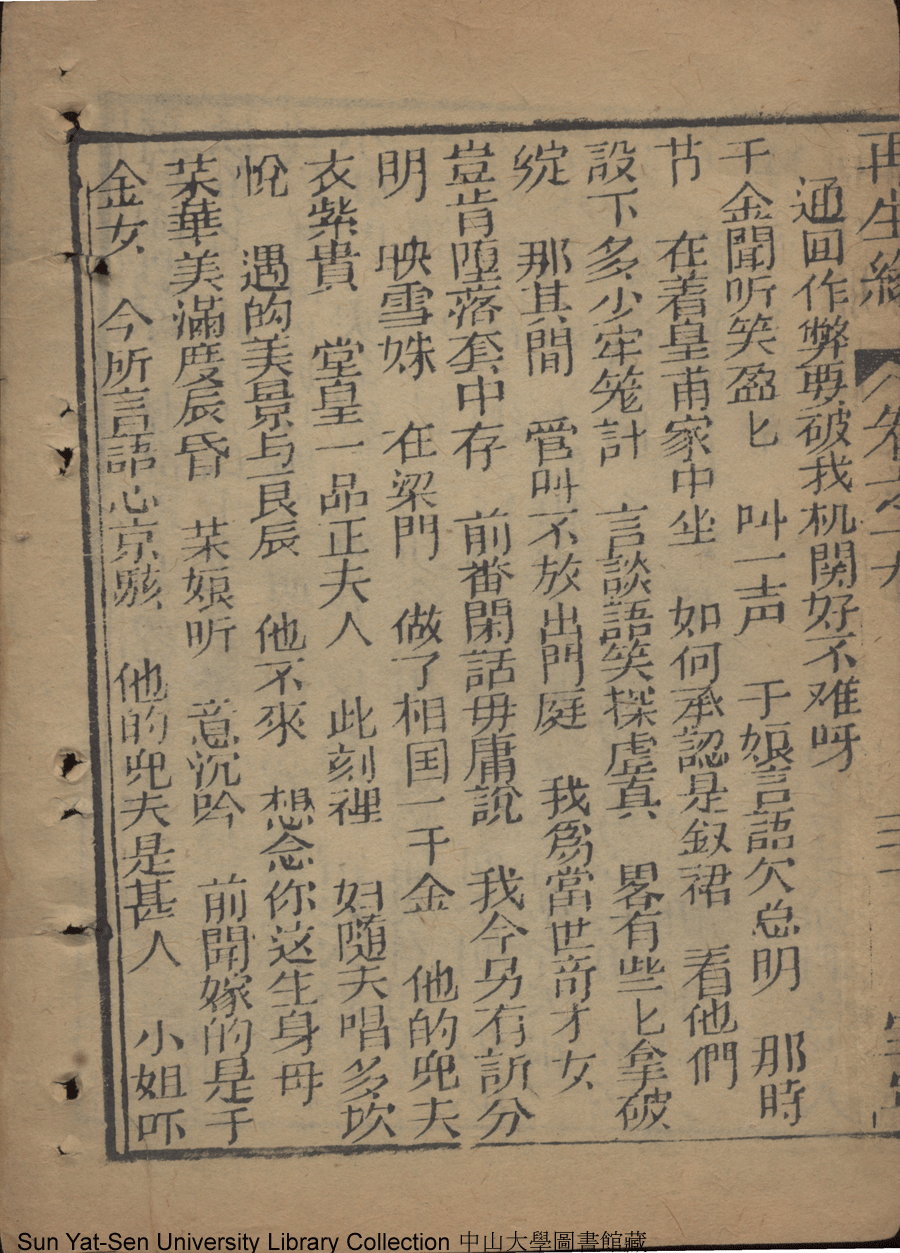 再生緣 卷之十九
通囬作弊要破我机関好不难呀
千金聞听笑盈匕 叫一声 于娘言語欠总明 那時
节 在着皇甫家中坐 如何承認是釵裙 看他們
設下多少牢笼計 言談語笑探虚真 畧有些匕拿破
綻 那其間 管叫不放出門庭 我為當世奇才女
豈肯堕落套中存 前番閑話毋庸說 我今另有訴分
明 映雪姝 在梁門 做了相国一千金 他的兜夫
衣紫貴 堂皇一品正夫人 此刻裡 妇随夫唱多坎
悅 遇的美景与良辰 他不來 想念你这生身母
荣華美滿度辰昏 某娘听 意沉吟 前聞嫁的是于
金女 今所言語心京駭 他的兜夫是甚人 小姐吓
Sun Yat-Sen University Library Collection 中山大學圖書館藏